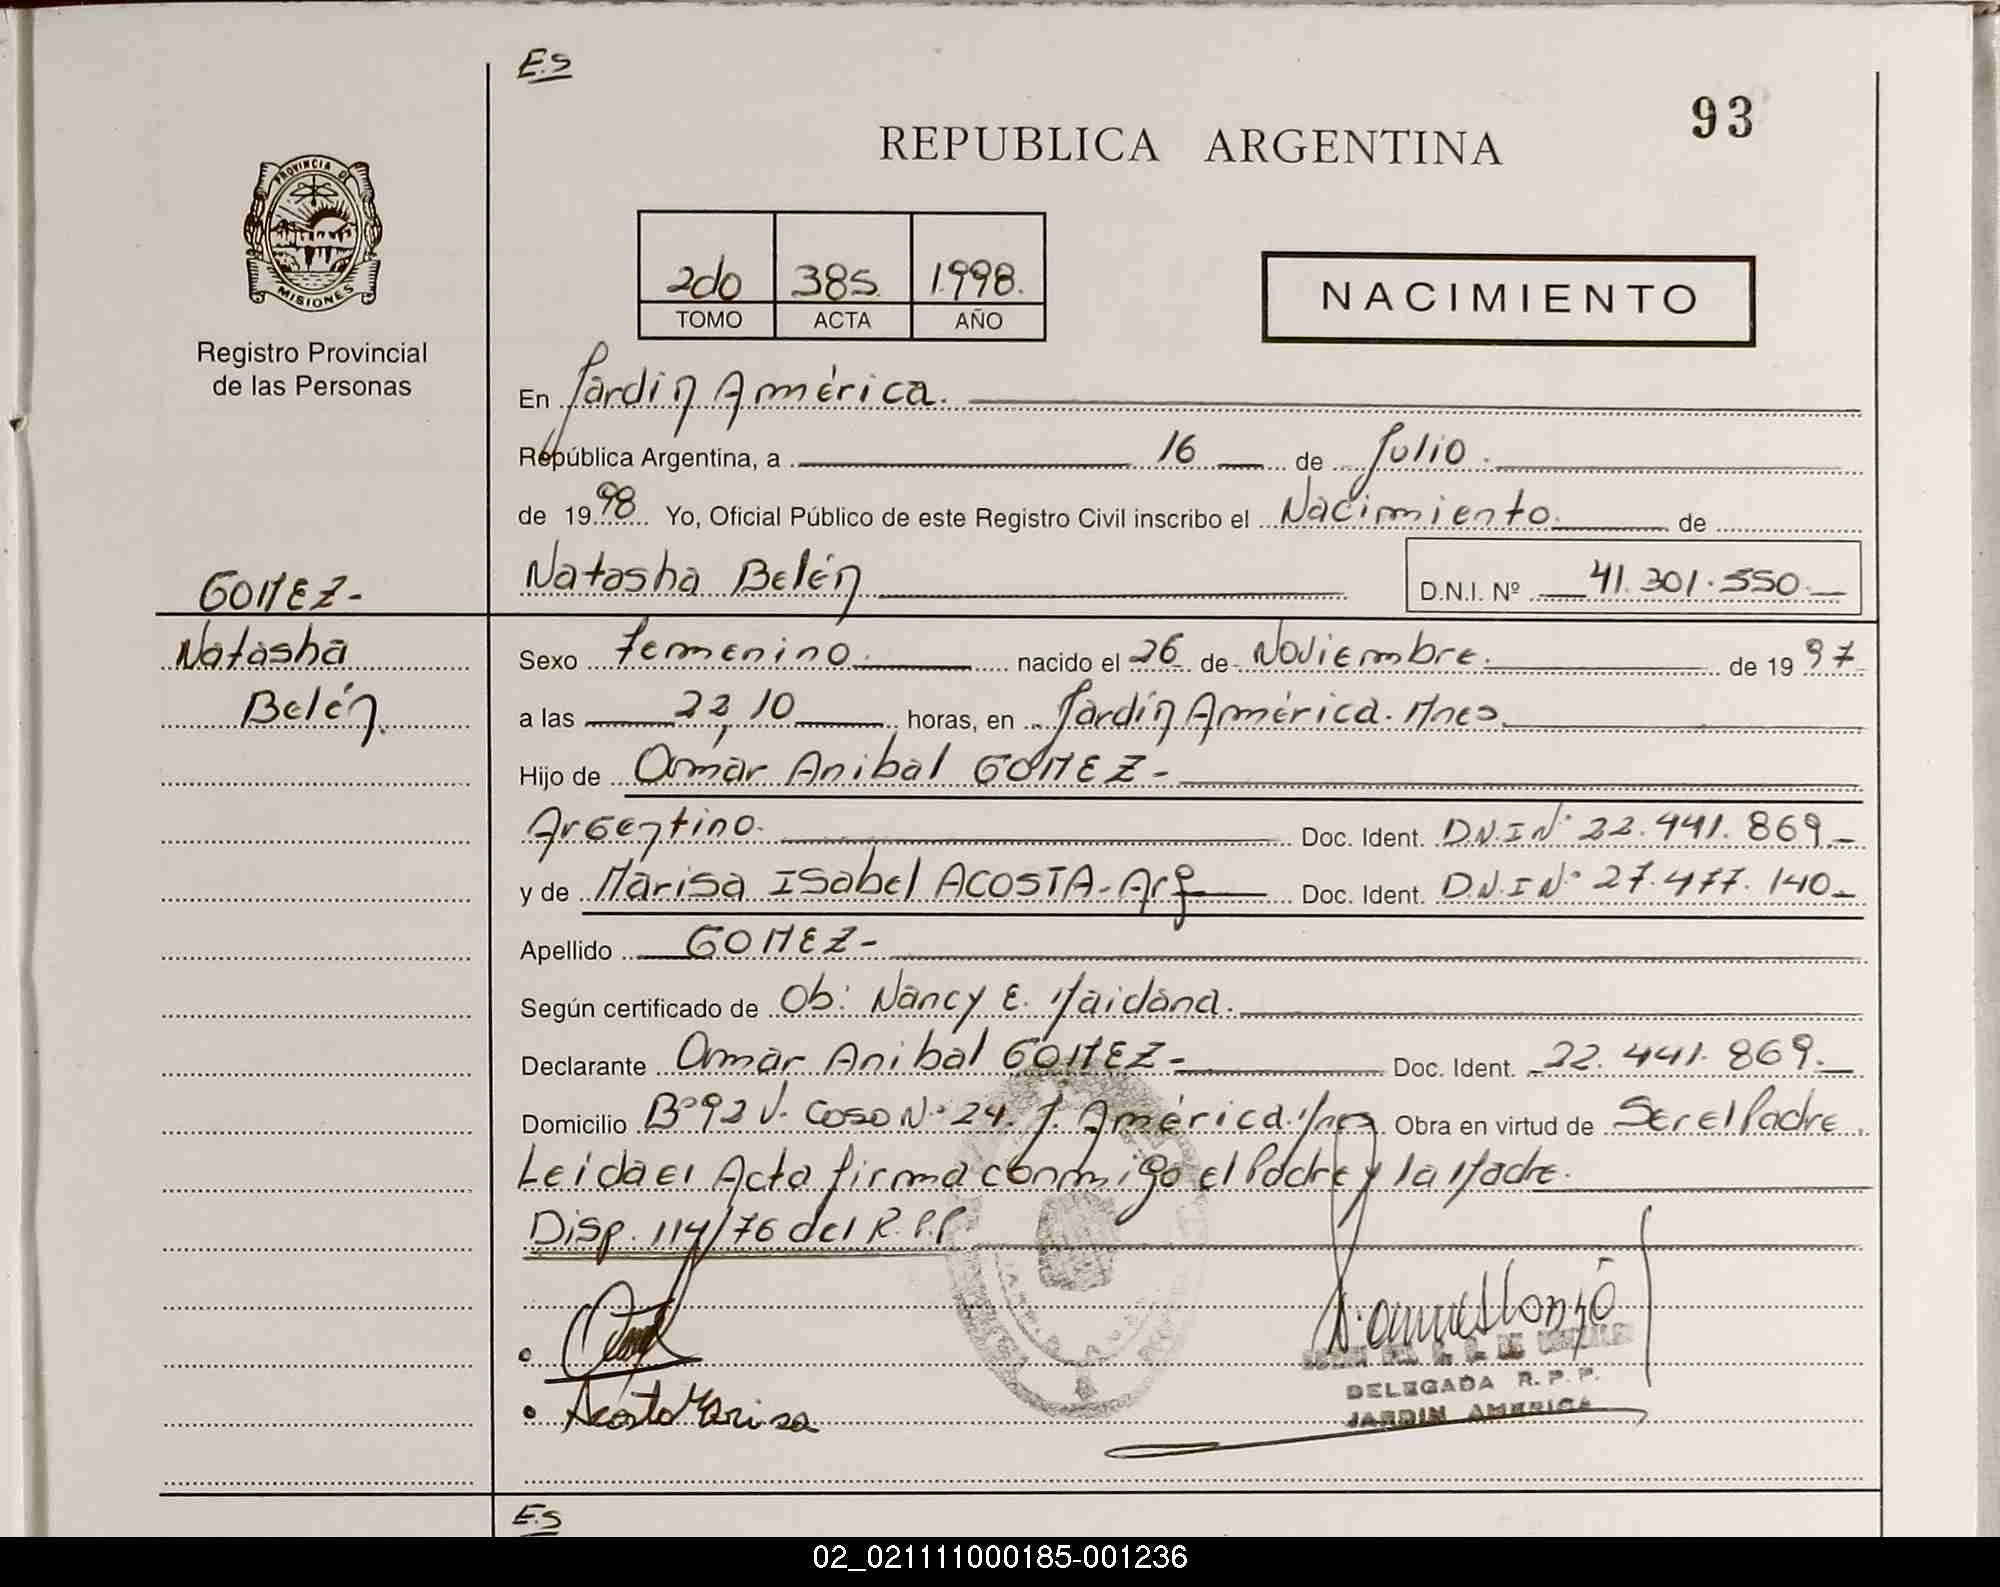 E.S
93
REPUBLICA ARGENTINA
PROVINCIA DE
MISIONES
Registro Provincial
de las Personas
2do 385. 1.998.
TOMO ACTA AÑO
NACIMIENTO
En Jardín América.
República Argentina, a 16 de Julio.
de 1998 Yo, Oficial Público de este Registro Civil inscribo el Nacimiento de
Natasha Belén D.N.I. Nº 41.301.550
GOMEZ-
Natasha
Belén.
Sexo Femenino. nacido el 26 de Noviembre. de 1997
a las 22,10 horas, en Jardín América. Mnes.
Hijo de Omar Anibal GOMEZ-
Argentino. Doc. Ident. D.N.I Nº 22.441.869-
y de Marisa ISabel ACOSTA-Arg Doc. Ident. D.N.I Nº 27.477.140-
Apellido GOMEZ-
Según certificado de Ob: Nancy E. Maidana.
Declarante Omar Anibal GOMEZ- Doc. Ident. 22.441.869.
Domicilio Bº 92 V. Casa Nº 24. J. América. Mnes Obra en virtud de Ser el Padre.
Leida el Acta firma conmigo el Padre y la Madre.
Disp. 114/76 del R.P.P.
Acosta Marisa
DELEGADA R.P.P.
JARDIN AMERICA
E.S
02_021111000185-001236